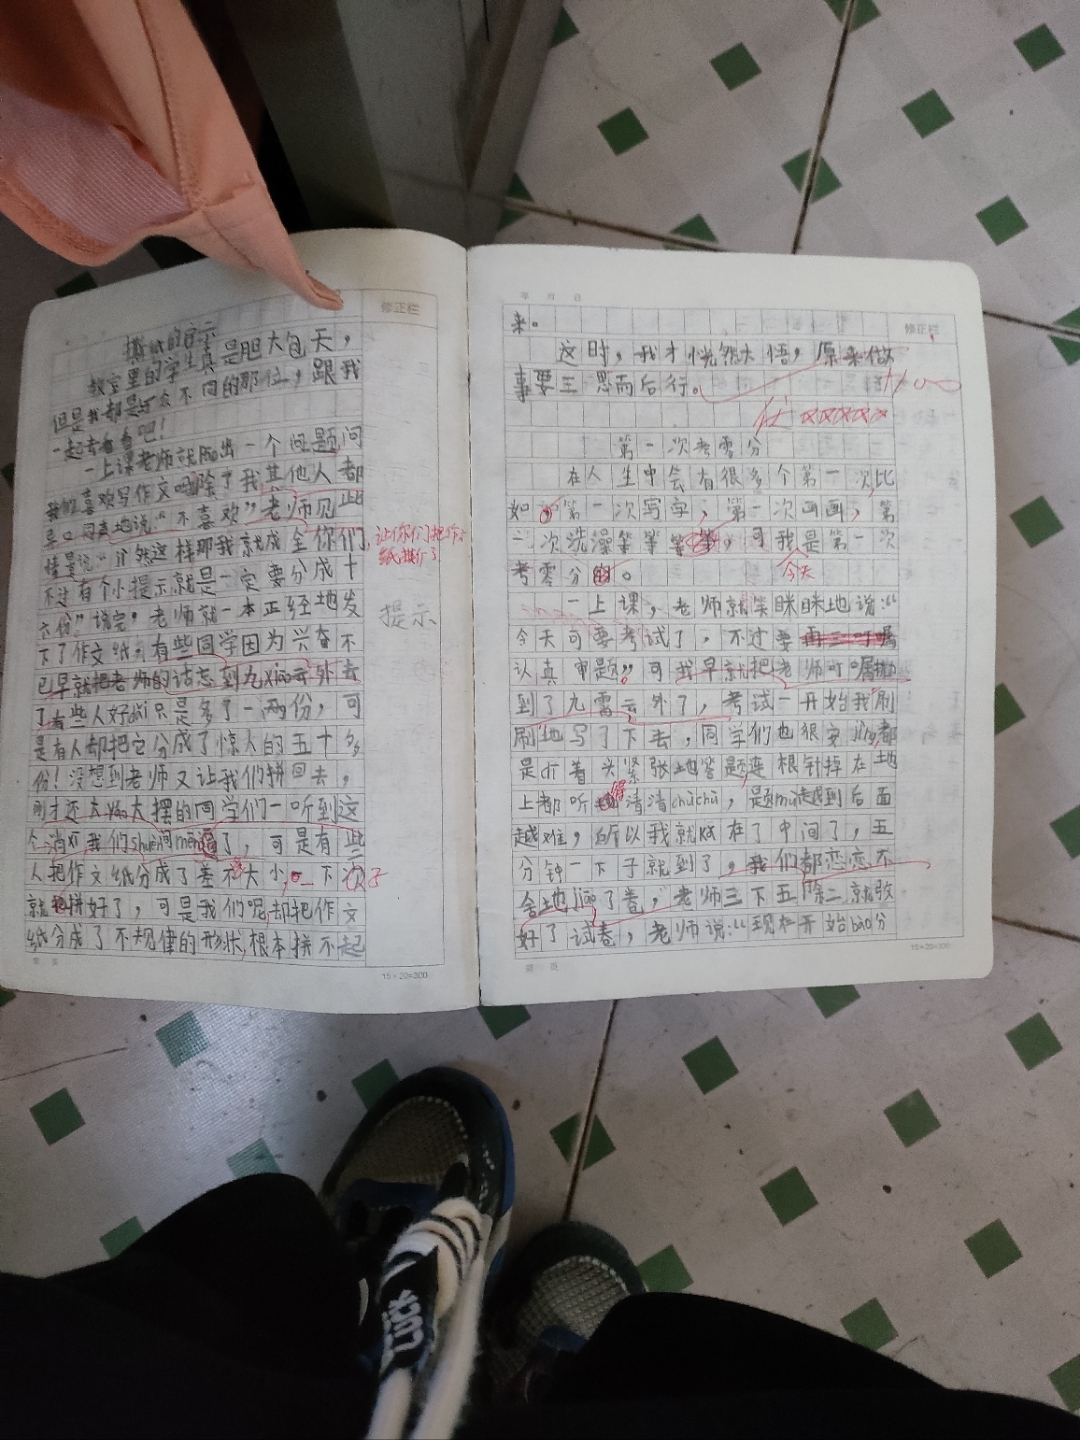 修正栏
撕纸的启示
教室里的学生真是胆大包天，
但是我都是
不同的那位，跟我
一起去看看吧！
一上课老师就抛出一个问题问
我们喜欢写作文吗除了我其他人都
异口同声地说：“不喜欢”老师见此
情景说“既然这样那我就成全你们，
让你们把作文纸撕了
不过有个小提示就是一定要分成十
六份”说完，老师就一本正经地发
提示
下了作文纸，有些同学因为兴奋不
已早就把老师的话忘到九xiāo云外去
了有些人好dǎi只是多了一两份，可
是有人却把它分成了惊人的五十多
份！没想到老师又让我们拼回去，
刚才还大yáo大摆的同学们一听到这
个消息我们shùn间mēng逼了，可是有些
人把作文纸分成了差不大小，一下子
就拼好了，可是我们呢却把作文
纸分成了不规律的形状，根本拼不起
15×20=300
年 月 日
修正栏
来。
这时，我才恍然大悟，原来做
事要三思而后行。
第一次考零分
在人生中会有很多个第一次比
如：第一次写字，第一次画画，第
一次洗澡等等等等，可我是第一次
今天
考零分的。
一上课，老师就笑眯眯地说：“
今天可要考试了，不过要再三叮嘱
认真审题”可我早就把老师叮嘱抛
到了九霄云外了，考试一开始我刷
刷地写了下去，同学们也很安jìng，都
是听着头紧张地答题连根针掉在地
上都听得清清chǔchǔ，是题mù越到后面
越难，所以我就kǎ在了中间了，五
分钟一下子就到了，我们都恋恋不
舍地jiāo了卷，老师三下五除二就改
好了试卷，老师说：“现在开始bào分
第 页
15×20=300